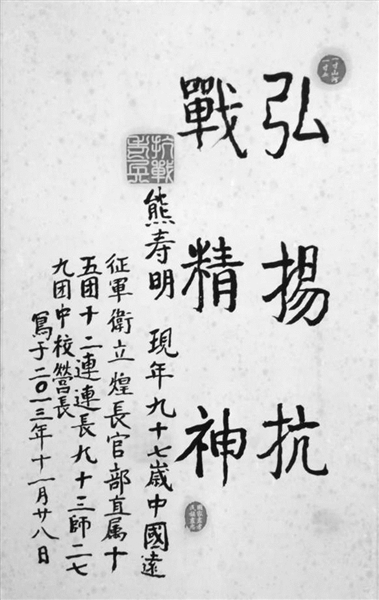 一寸山河
一寸血
弘揚抗
戰精神
抗戰
老兵
熊寿明 現年九十七歲中國遠
征軍衛立煌長官部直属十
五团十二連連長九十三師二七
九团中校營長
寫于二〇一三年十一月廿八日